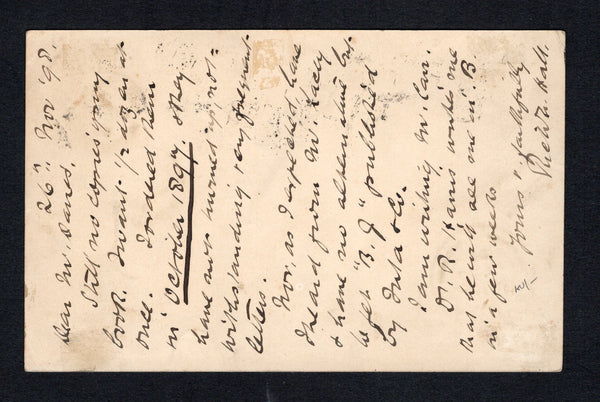 26th Nov '98.
Dear Mr. Davis.
Still no copies of my
book. I want 1/2 dozen at
once. I ordered them
in October 1897. They
have not turned up, not-
withstanding very frequent
letters.
Nor, as I expected, have
I heard from Mr. Lacey
& have no alternative but
to get "B. J" published
by &Co.
I am writing Mr. Carr.
D. R. Harris writes me
that he will see me in B
in a few weeks
Yours faithfully
Hall.